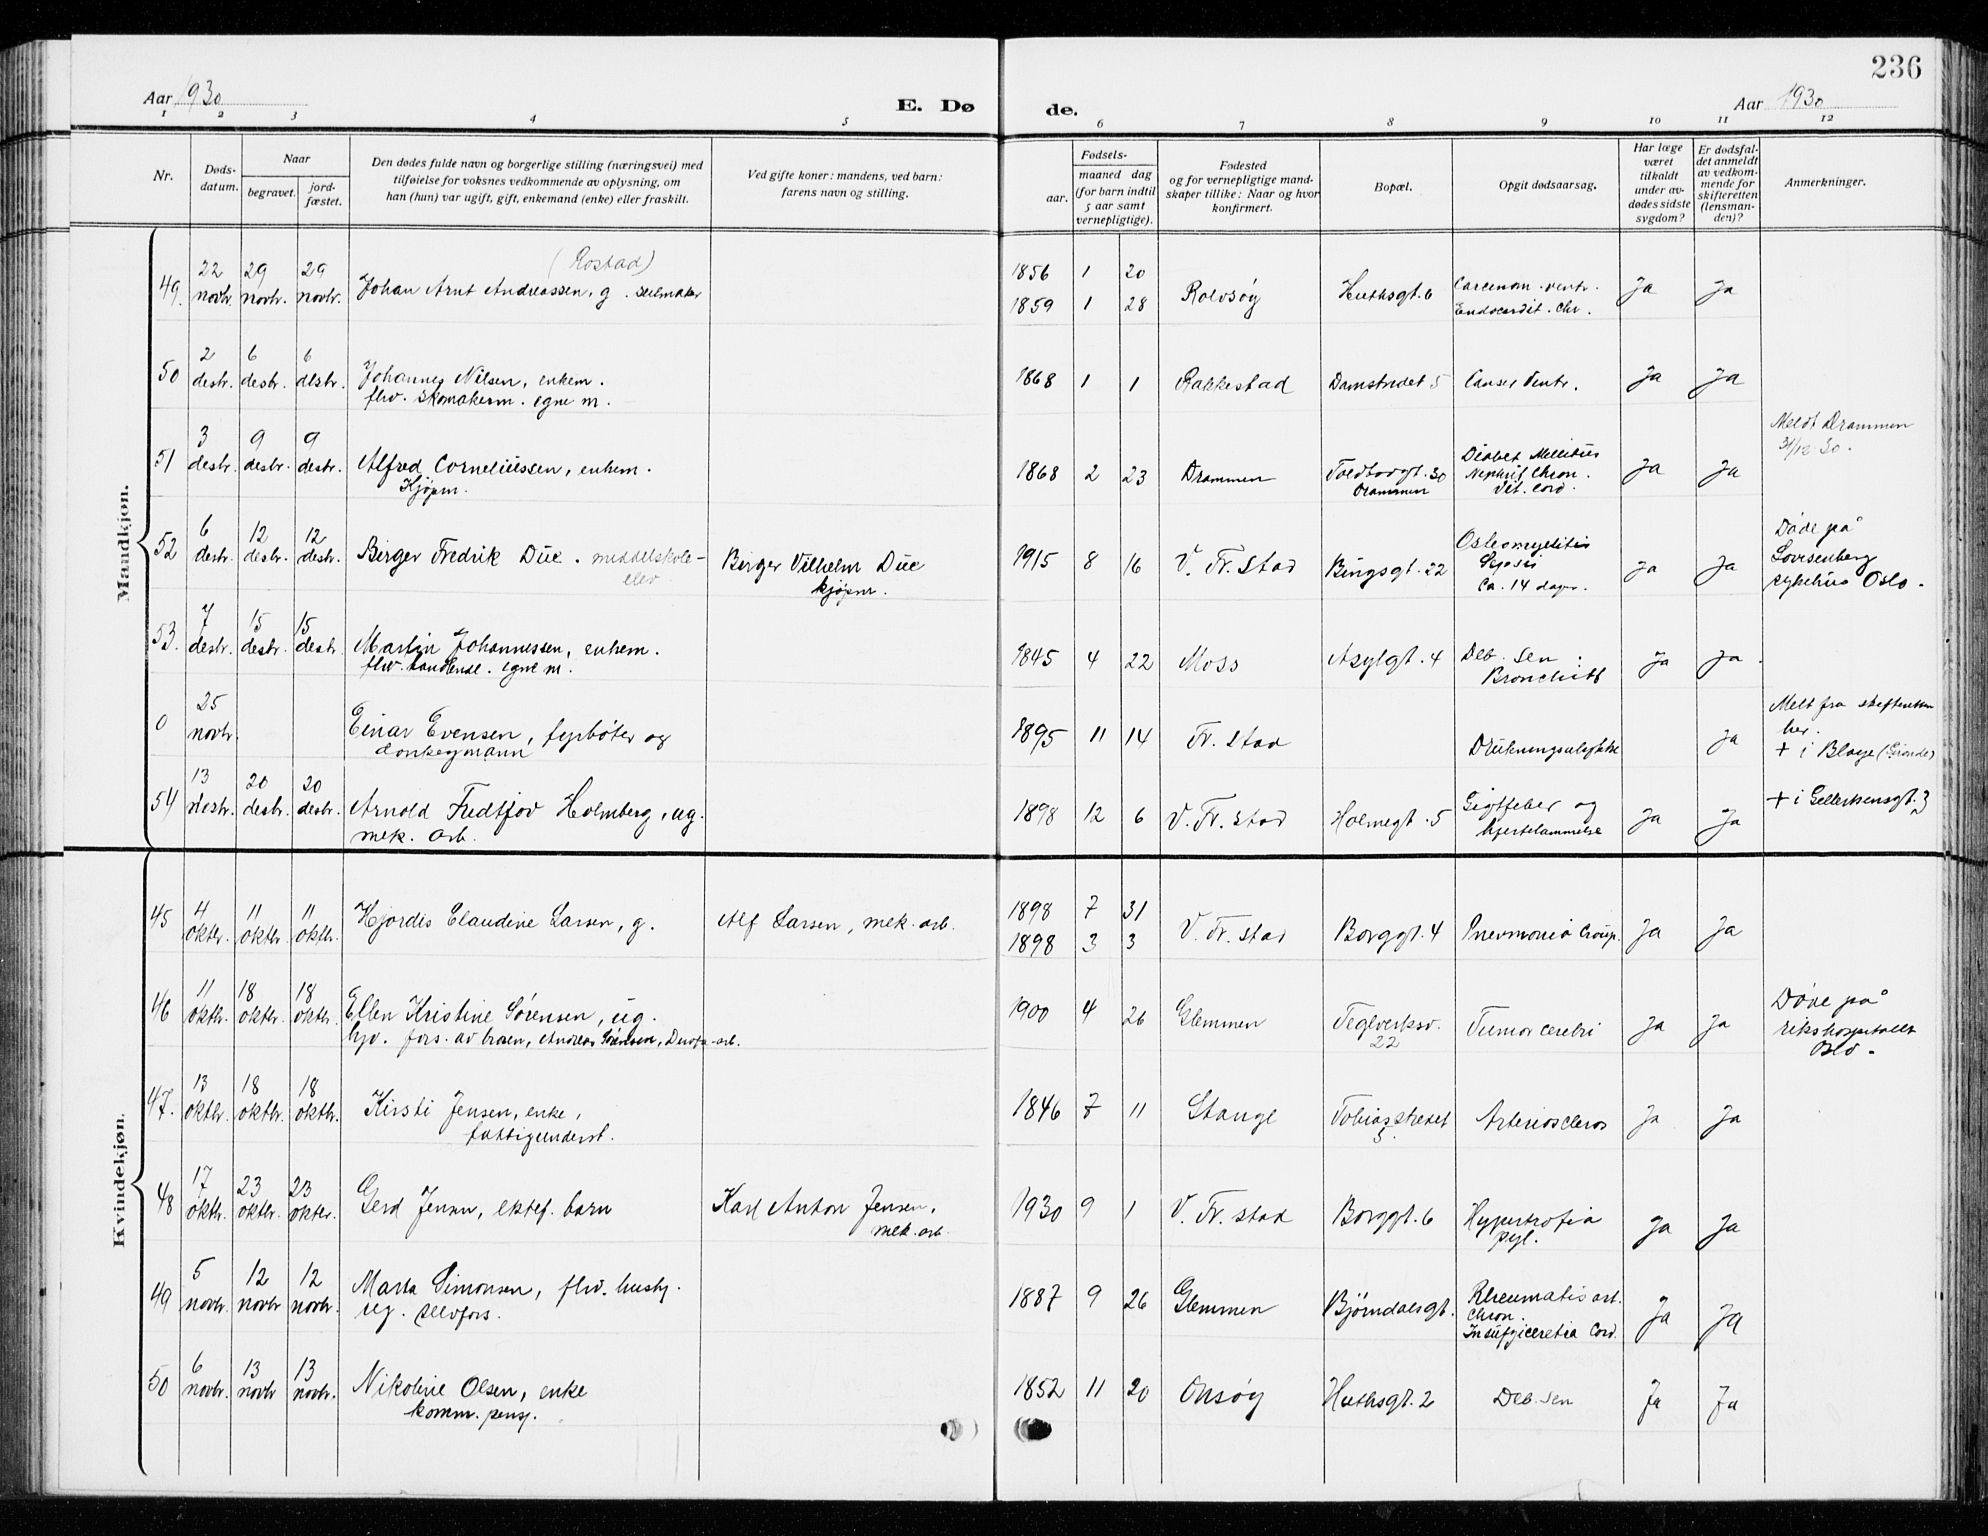 236
Aar 1930
E. Dø de.
Aar 1930
1 2 3 4 5 6 7 8 9 10 11 12
Nr.
Døds-
datum.
Naar
begravet.
jord-
fæstet.
Den dødes fulde navn og borgerlige stilling (næringsvei) med
tilføielse for voksnes vedkommende av oplysning, om
han (hun) var ugift, gift, enkemand (enke) eller fraskilt.
Ved gifte koner: mandens, ved barn:
farens navn og stilling.
Fødsels-
aar.
maaned dag
(for barn indtil
5 aar samt
vernepligtige).
Fødested
og for vernepligtige mand-
skaper tillike: Naar og hvor
konfirmert.
Bopæl.
Opgit dødsaarsag.
Har læge
været
tilkaldt
under av-
dødes sidste
sygdom?
Er dødsfal-
det anmeldt
av vedkom-
mende for
skifteretten
(lensman-
den)?
Anmerkninger.
Mandkjøn.
(Rostad)
22 29 29
49. novbr. novbr. novbr. Johan Arnt Andreassen, g. seilmaker
1856 1 20
1859 1 28 Rolvsøy Huthsgt. 6 Carcinom. ventr. Ja Ja
Endocardit. chr.
2 6 6
50 desbr. desbr. desbr. Johannes Nilsen, enkem.
fhv. skomakerm. egne m.
1868 1 1 Rakkestad Damstredet 5 Cancer Ventr. Ja Ja
3 9 9
51 desbr. desbr. desbr. Alfred Corneliussen, enkem.
Kjøpm.
1868 2 23 Drammen Toldbodgt. 30 Ja Ja
Drammen
Diabet Mellitus
Nephrit Chron.
Vit. Cord.
Meldt Drammen
31/12 30.
6 12 12
52 desbr. desbr. desbr. Birger Fredrik Due. middelskole-
elev
Birger Vilhelm Due
kjøpm.
1915 8 16 V. Fr.stad Bingsgt. 22 Ja Ja
Osteomyelitis
Sepsis
Ca. 14 dager.
Døde på
Lovisenberg
sykehus Oslo.
7 15 15
53. desbr. desbr. desbr. Martin Johannessen, enkem.
fhv. handlende. egne m.
1845 4 22 Moss Asylgt. 4 Deb. sen. Ja Ja
Bronchitt
25
0 novbr. Einar Evensen, fyrbøter og
donkeymann
1895 11 14 Fr.stad Drukningsulykke Ja
Melt fra skifteretten
her.
+ i Blaye (Gironde)
13 20 20
54 desbr. desbr. desbr. Arnold Fridtjov Holmberg, ug.
mek. arb.
1898 12 6 V. Fr.stad Holmegt. 5 Ja Ja
Gigtfeber og
hjertelammelse
+ i Gellertsensgt. 3
Kvindekjøn.
4 11 11
45 oktbr. oktbr. oktbr. Hjørdis Claudine Larsen, g. Alf Larsen, mek. arb.
1898 7 31
1898 3 3 V. Fr.stad Borggt. 4 Pnevmonia Croup. Ja Ja
11 18 18
46 oktbr. oktbr. oktbr. Ellen Kristine Sørensen, ug.
hjv. fors. av broren, Andreas Sørensen,
1900 4 26 Glemmen Teglverksv. Tumor cerebri Ja Ja
22
Døde på
rikshospitalet
Oslo.
13 18 18
47. oktbr. oktbr. oktbr. Kirsti Jensen, enke,
fattigunderst.
1846 7 11 Stange Tobiasstredet Arterioscleros Ja Ja
5.
17 23 23
48 oktbr. oktbr. oktbr. Gerd Jensen, ektef. barn Karl Anton Jensen,
mek. arb.
1930 9 1 V. Fr.stad Borggt. 6 Hypertrofia Ja Ja
pyl.
5 12 12
49 novbr. novbr. novbr. Marta Simonsen, fhv. hush.
ug. selvfors.
1887 9 26 Glemmen Bjørndalsgt. Ja Ja
Rheumatis art.
Chron.
Insufficientia Cord.
6 13 13
50 novbr. novbr novbr. Nikoline Olsen, enke
komm. pensj.
1852 11 20 Onsøy Huthsgt. 2 Deb. sen Ja Ja